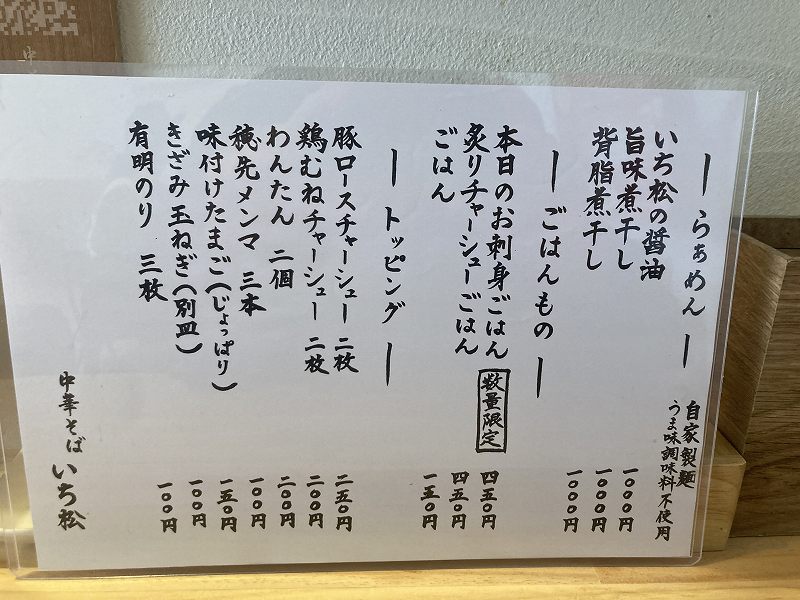 ― らぁめん ―
自家製麺
うま味調味料不使用
いち松の醤油 一〇〇〇円
旨味煮干し 一〇〇〇円
背脂煮干し 一〇〇〇円
― ごはんもの ―
本日のお刺身ごはん 数量限定 四五〇円
炙りチャーシューごはん 四五〇円
ごはん 一五〇円
― トッピング ―
豚ロースチャーシュー 二枚 二五〇円
鶏むねチャーシュー 二枚 二〇〇円
わんたん 二個 二〇〇円
穂先メンマ 三本 一〇〇円
味付けたまご(じょっぱり) 一五〇円
きざみ玉ねぎ(別皿) 一〇〇円
有明のり 三枚 一〇〇円
中華そば いち松